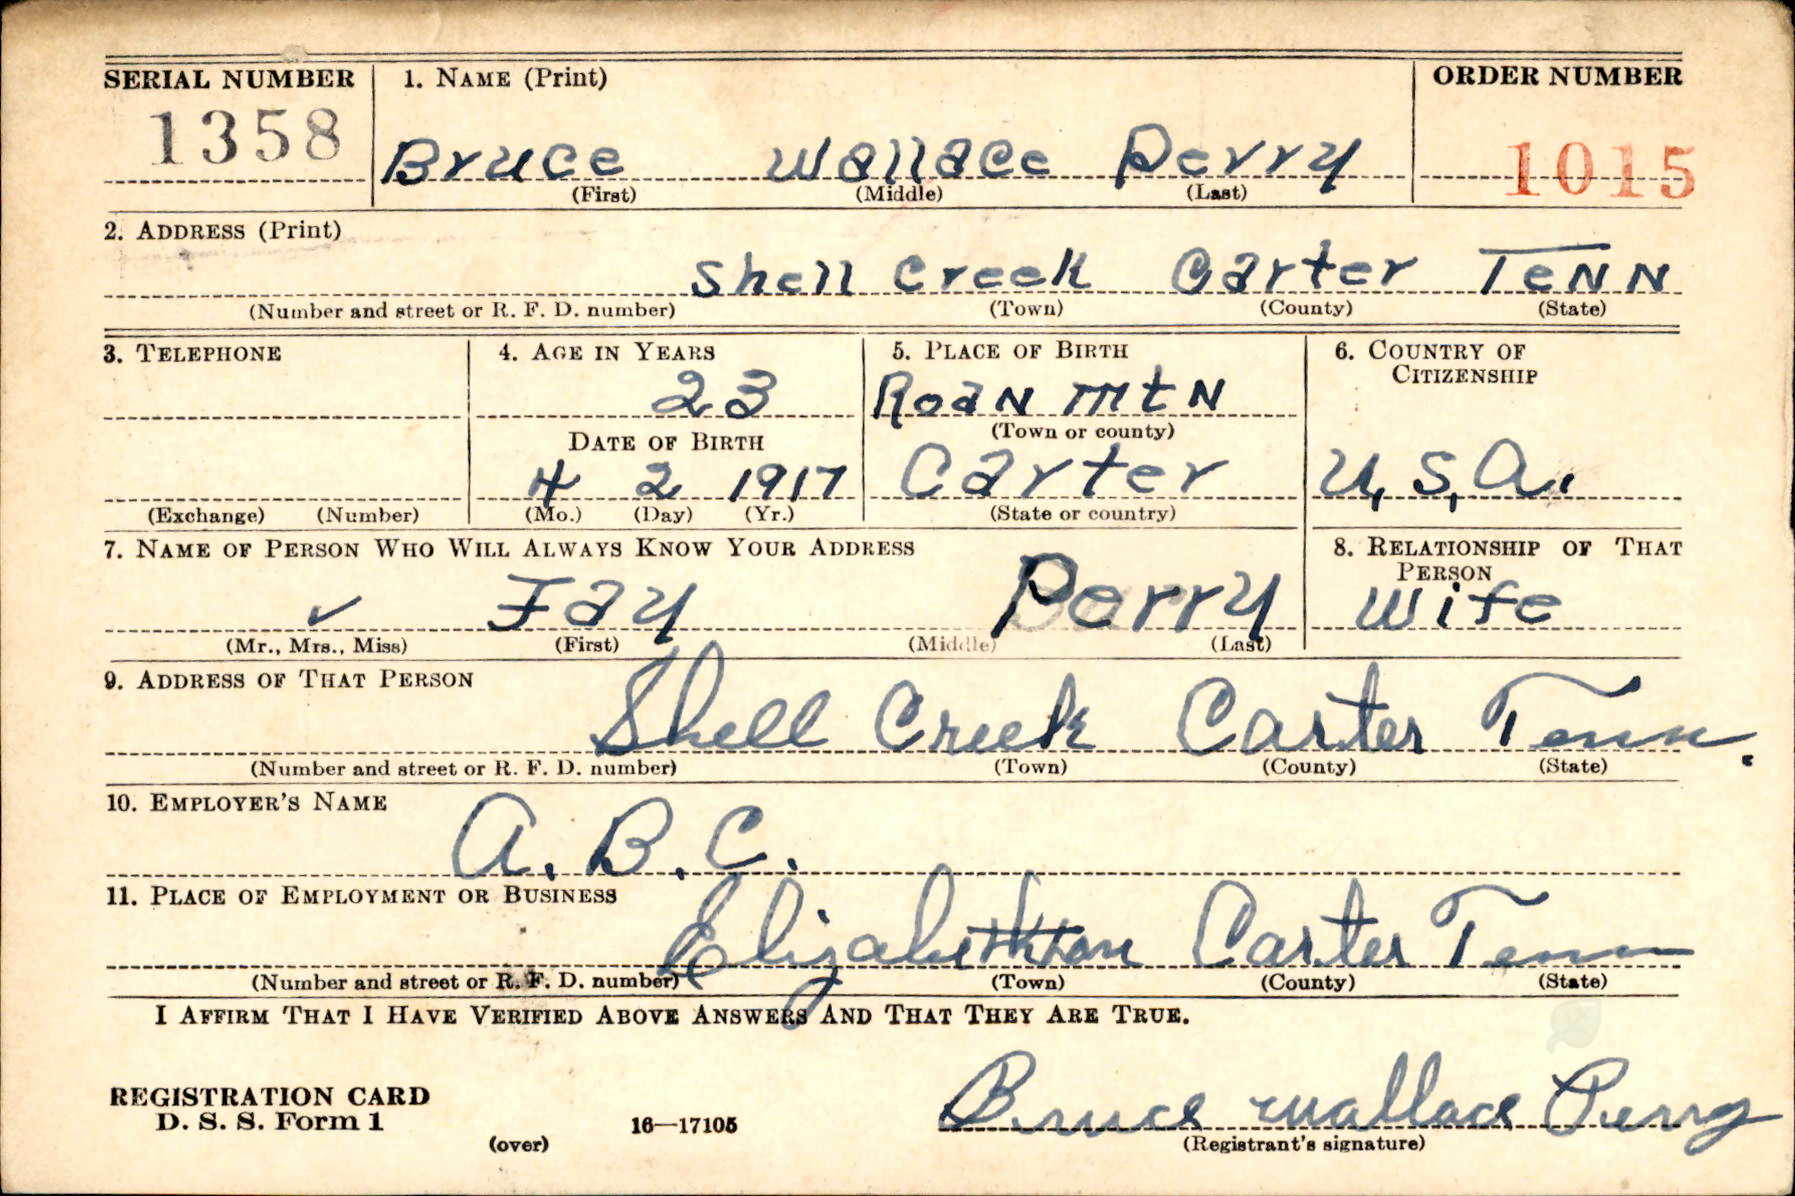 SERIAL NUMBER 1. NAME (Print) ORDER NUMBER
1358 Bruce Wallace Perry 1015
(First) (Middle) (Last)
2. ADDRESS (Print)
Shell Creek Carter TENN
(Number and street or R. F. D. number) (Town) (County) (State)
3. TELEPHONE 4. AGE IN YEARS 5. PLACE OF BIRTH 6. COUNTRY OF CITIZENSHIP
23 Roan mtn
DATE OF BIRTH (Town or county)
4 2 1917 Carter U.S.A.
(Exchange) (Number) (Mo.) (Day) (Yr.) (State or country)
7. NAME OF PERSON WHO WILL ALWAYS KNOW YOUR ADDRESS 8. RELATIONSHIP OF THAT PERSON
✓ Fay Perry Wife
(Mr., Mrs., Miss) (First) (Middle) (Last)
9. ADDRESS OF THAT PERSON
Shell Creek Carter Tenn.
(Number and street or R. F. D. number) (Town) (County) (State)
10. EMPLOYER'S NAME
A. B. C.
11. PLACE OF EMPLOYMENT OR BUSINESS
Elizabethton Carter Tenn
(Number and street or R. F. D. number) (Town) (County) (State)
I AFFIRM THAT I HAVE VERIFIED ABOVE ANSWERS AND THAT THEY ARE TRUE.
REGISTRATION CARD
D. S. S. Form 1 16—17105 Bruce Wallace Perry
(over) (Registrant's signature)